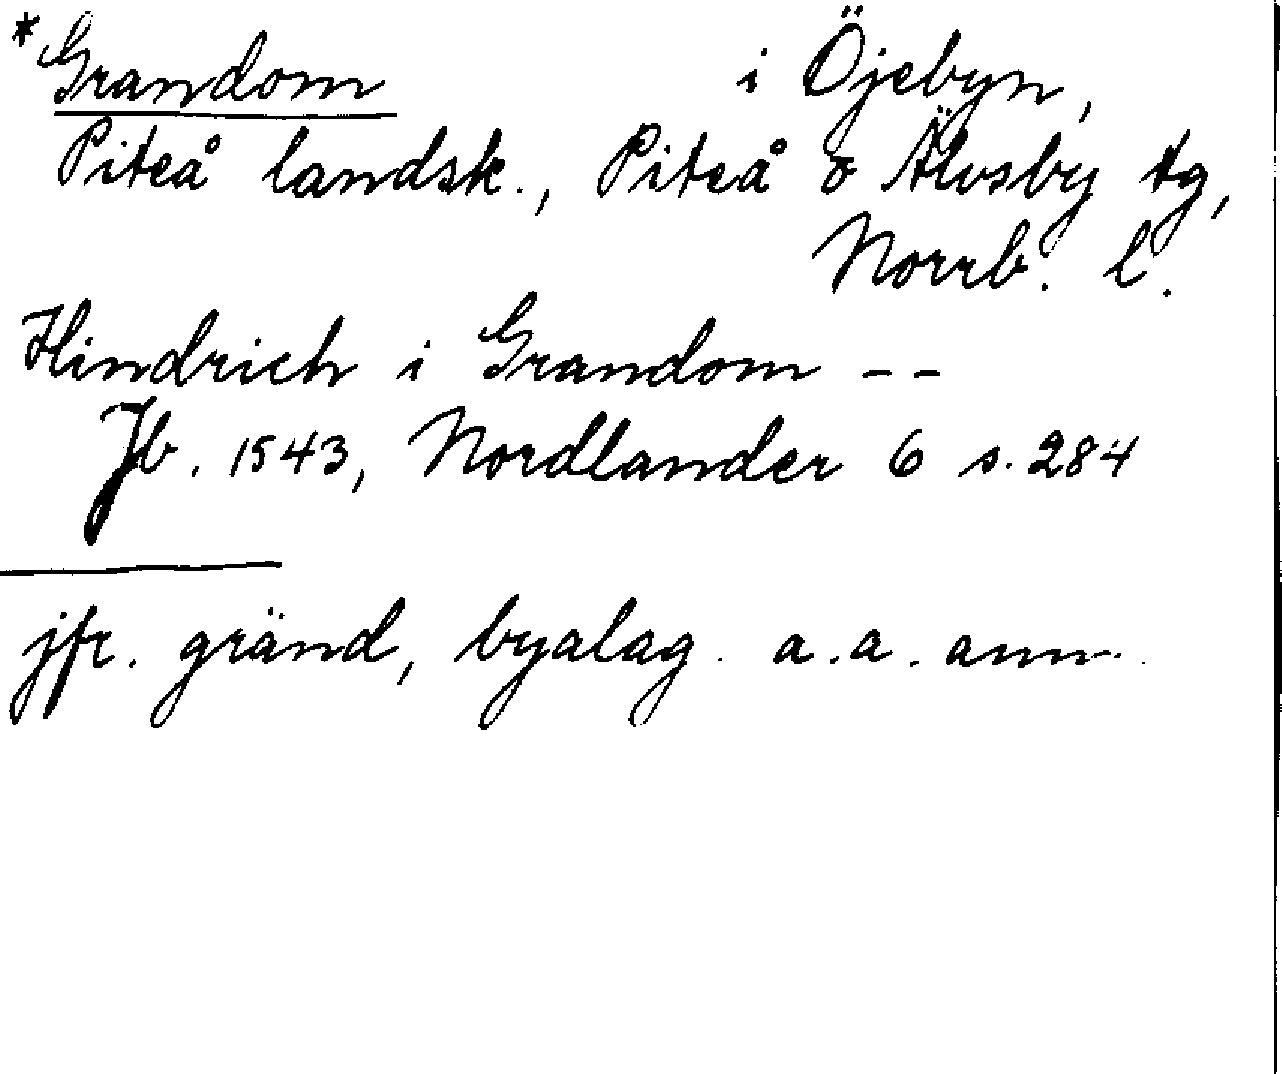 *Grandom i Öjebyn,
Piteå landsk., Piteå o Älvsby tg,
Norrb. l.
Hindrich i Grandom --
Jb. 1543, Nordlander 6 s. 284
jfr. gränd, byalag. a.a. anm.